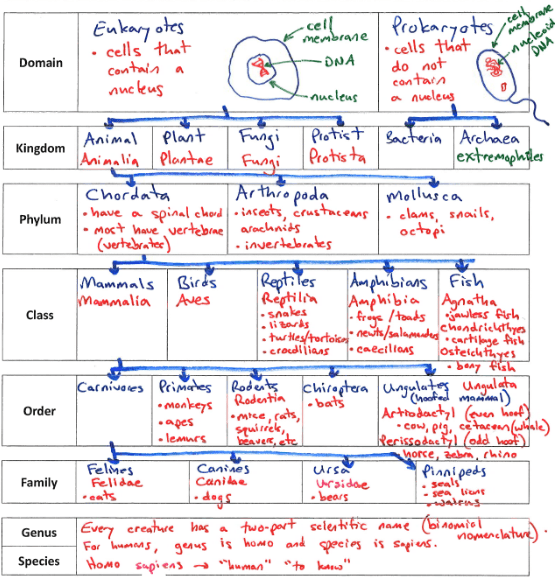 Domain
Eukaryotes
• cells that
contain a
nucleus
cell
membrane
DNA
nucleus
Prokaryotes
• cells that
do not
contain
a nucleus
cell
membrane
nucleoid
DNA
Kingdom
Animal
Animalia
Plant
Plantae
Fungi
Fungi
Protist
Protista
Bacteria
Archaea
extremophiles
Phylum
Chordata
• have a spinal chord
• most have vertebrae
(vertebrates)
Arthropoda
• insects, crustaceans
arachnids
• invertebrates
Mollusca
• clams, snails,
octopi
Class
Mammals
Mammalia
Birds
Aves
Reptiles
Reptilia
• snakes
• lizards
• turtles/tortoises
• crocdilians
Amphibians
Amphibia
• frogs/toads
• newts/salamanders
• caecilians
Fish
Agnatha
• jawless fish
chondrichthyes
• cartilage fish
Osteichthyes
• bony fish
Order
Carnivores
Primates
• monkeys
• apes
• lemurs
Rodents
Rodentia
• mice, rats,
squirrels,
beavers, etc
Chiroptera
• bats
Ungulates Ungulata
(hooted mammal)
Artiodactyl (even hoof)
• cow, pig, cetacean (whale)
Perissodactyl (odd hoof)
horse, zebra, rhino
Family
Felines
Felidae
• cats
Canines
Canidae
• dogs
Ursa
Ursidae
• bears
Pinnipeds
• seals
• sea lions
• walrus
Genus
Every creature has a two-part scientific name (binomial
nomenclature).
For humans, genus is homo and species is sapiens.
Species
Homo sapiens → "human" "to know"